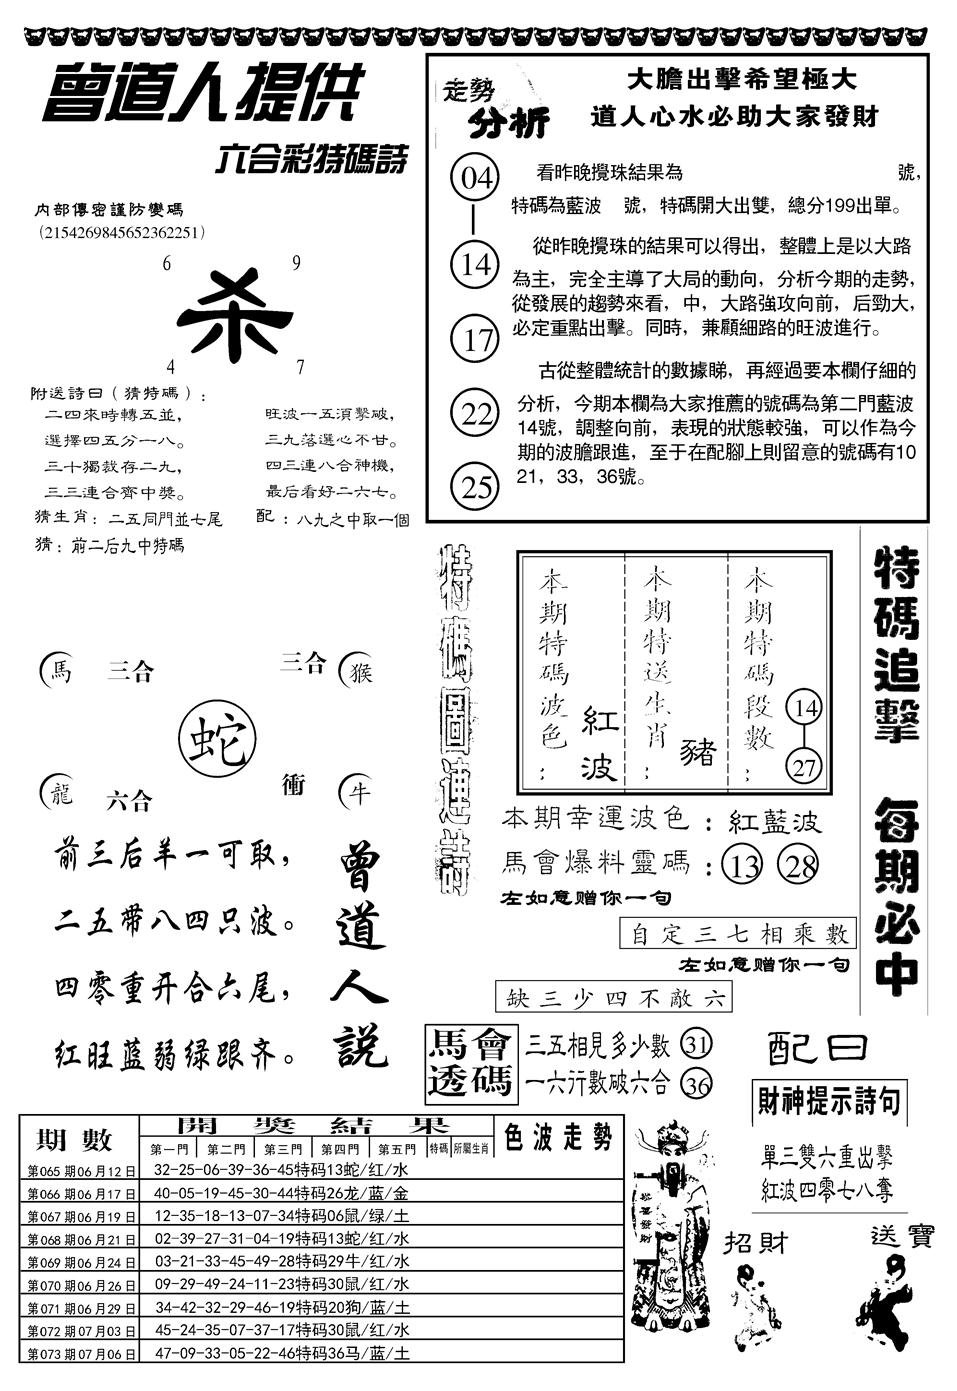 曾道人提供
六合彩特碼詩
内部傳密謹防變碼
（2154269845652362251）
6 9
杀
4 7
附送詩曰（猜特碼）：
二四來時轉五並， 旺波一五須擊破，
選擇四五分一八。 三九落選心不甘。
三十獨裁存二九， 四三連八合神機，
三三連合齊中獎。 最后看好二六七。
猜生肖：二五同門並七尾 配：八九之中取一個
猜：前二后九中特碼
走勢
分析
大膽出擊希望極大
道人心水必助大家發財
04
14
17
22
25
看昨晚攪珠結果為 號，
特碼為藍波 號，特碼開大出雙，總分199出單。
從昨晚攪珠的結果可以得出，整體上是以大路
為主，完全主導了大局的動向，分析今期的走勢，
從發展的趨勢來看，中，大路強攻向前，后勁大，
必定重點出擊。同時，兼顧細路的旺波進行。
古從整體統計的數據睇，再經過要本欄仔細的
分析，今期本欄為大家推薦的號碼為第二門藍波
14號，調整向前，表現的狀態較強，可以作為今
期的波膽跟進，至于在配腳上則留意的號碼有10
21，33，36號。
馬 三合 三合 猴
蛇
龍 六合 衝 牛
前三后羊一可取，
二五带八四只波。
四零重开合六尾，
红旺蓝弱绿跟齐。
曾道人説
特碼圖連詩
本期特碼波色： 紅波
本期特送生肖： 豬
本期特碼段數： 14 27
本期幸運波色：紅藍波
馬會爆料靈碼：13 28
左如意赠你一句
自定三七相乘數
左如意赠你一句
缺三少四不敵六
馬會透碼
三五相見多少數 31
一六行數破六合 36
特碼追擊 每期必中
配曰
財神提示詩句
單三雙六重出擊
紅波四零七八奪
招財
送寶
期數 開獎結果 色波走勢
第一門 第二門 第三門 第四門 第五門 特碼 所屬生肖
第065期06月12日 32-25-06-39-36-45特码13蛇/红/水
第066期06月17日 40-05-19-45-30-44特码26龙/蓝/金
第067期06月19日 12-35-18-13-07-34特码06鼠/绿/土
第068期06月21日 02-39-27-31-04-19特码13蛇/红/水
第069期06月24日 03-21-33-45-49-28特码29牛/红/水
第070期06月26日 09-29-49-24-11-23特码30鼠/红/水
第071期06月29日 34-42-32-29-46-19特码20狗/蓝/土
第072期07月03日 45-24-35-07-37-17特码30鼠/红/水
第073期07月06日 47-09-33-05-22-46特码36马/蓝/土